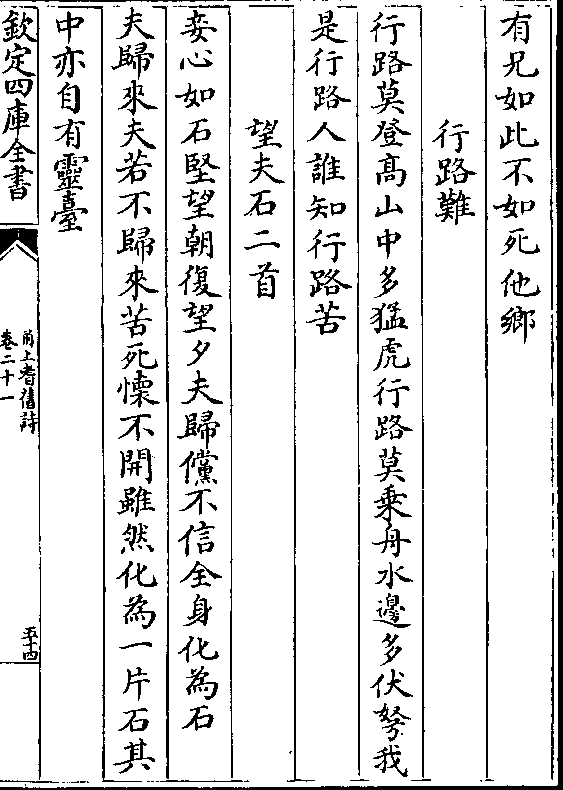 有兄如此不如死他鄉
行路難
行路莫登髙山中多猛虎行路莫乘舟水邊多伏弩我
是行路人誰知行路苦
望夫石二首
妾心如石堅望朝復望夕夫歸儻不信全身化為石
夫歸來夫若不歸來苦死懐不開雖然化為一片石其
中亦自有靈臺
欽定四庫全書
甬上耆舊詩
卷二十一
五十四